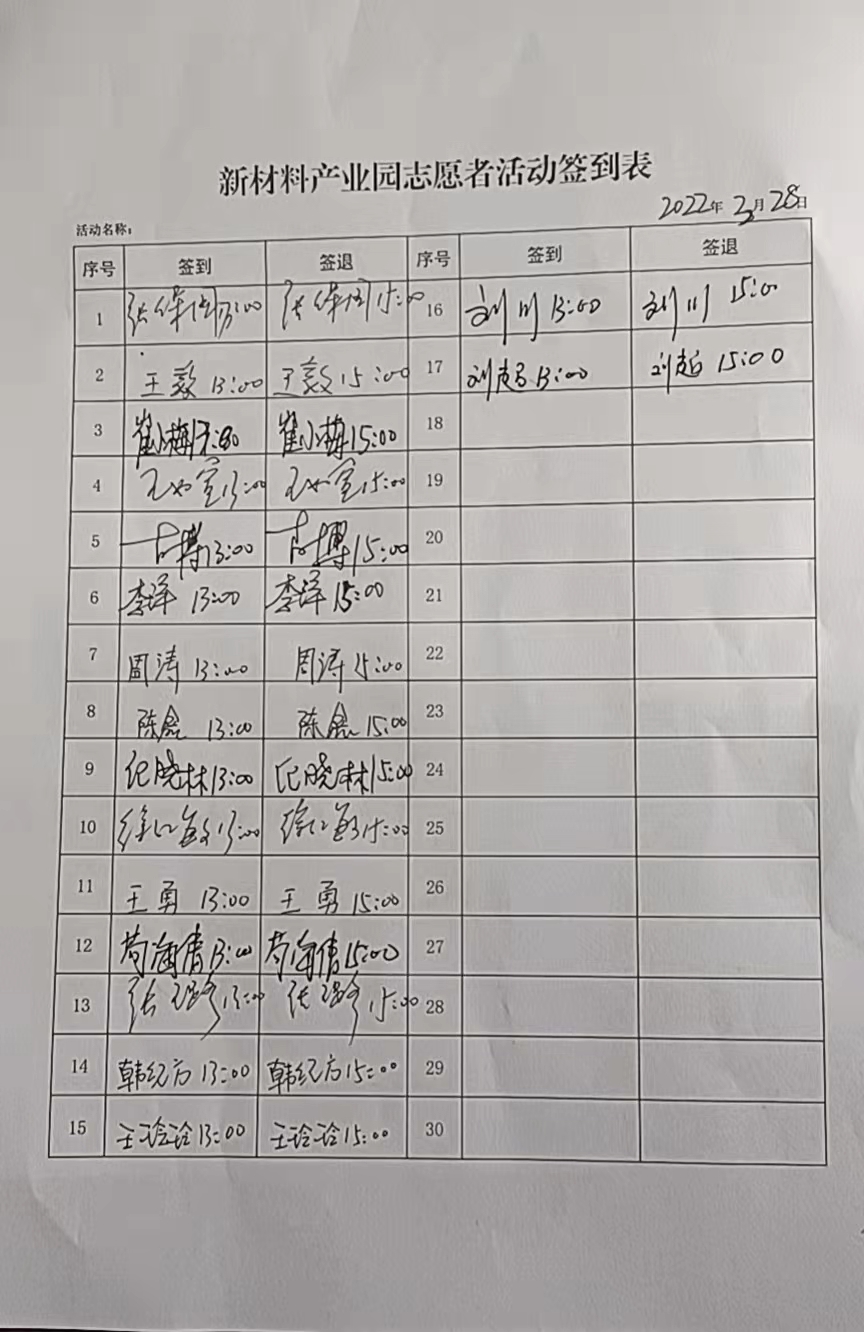 新材料产业园志愿者活动签到表
2022年3月28日
活动名称：
序号 签到 签退 序号 签到 签退
1 张保国 13:00 张保国 15:00 16 刘川 13:00 刘川 15:00
2 王毅 13:00 王毅 15:00 17 刘超 13:00 刘超 15:00
3 崔小梅 崔小梅 15:00 18
4 13:00 15:00 19
5 13:00 15:00 20
6 李洋 13:00 李洋 15:00 21
7 周涛 13:00 周涛 15:00 22
8 陈鑫 13:00 陈鑫 15:00 23
9 纪晓林 13:00 纪晓林 15:00 24
10 13:00 15:00 25
11 王勇 13:00 王勇 15:00 26
12 苟海倩 13:00 苟海倩 15:00 27
13 张 13:00 张 15:00 28
14 韩纪方 13:00 韩纪方 15:00 29
15 王玲玲 13:00 王玲玲 15:00 30